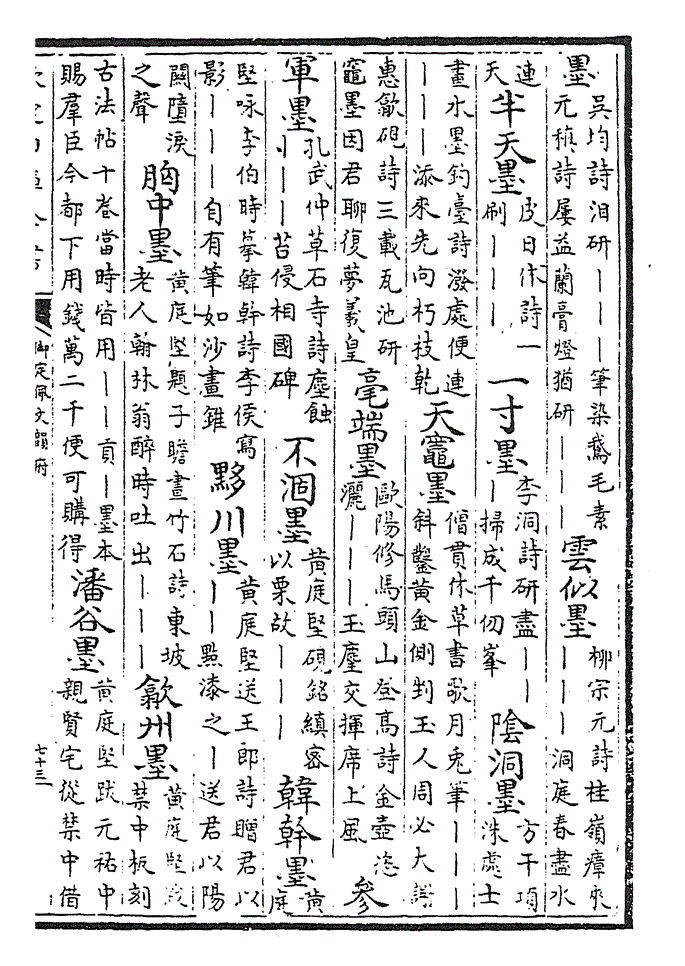 墨 吳均詩泪研｜｜｜筆染鵝毛素元稹詩屢益蘭膏燈猶研｜｜｜ 雲似墨 柳宗元詩桂嶺瘴來｜｜｜洞庭春盡水
連天 半天墨 皮日休詩一刷｜｜｜ 一寸墨 李洞詩研盡｜｜｜掃成千仞峯 陰洞墨 方干項洙處士
畫水墨釣臺詩潑處便連｜｜｜添來先向朽枝乾 天竈墨 僧貫休草書歌月兎筆｜｜｜斜鑿黃金側剉玉人周必大謝
惠歙硯詩三載瓦池研竈墨因君聊復夢羲皇 毫端墨 歐陽修馬頭山登高詩金壺恣灑｜｜｜玉麈交揮席上風 參
軍墨 孔武仲草石寺詩塵蝕｜｜｜苔侵相國碑 不涸墨 黃庭堅硯銘縝密以栗故｜｜｜ 韓幹墨 黃庭
堅咏李伯時摹韓幹詩李侯寫影｜｜｜自有筆如沙畫錐 黟川墨 黃庭堅送王郎詩贈君以｜｜點漆之｜送君以陽
關墮淚之聲 胸中墨 黃庭堅題子瞻畫竹石詩東坡老人翰林翁醉時吐出｜｜｜ 歙州墨 黃庭堅跋禁中板刻
古法帖十卷當時皆用｜｜貢｜墨本賜羣臣今都下用錢萬二千便可購得 潘谷墨 黃庭堅跋元祐中親賢宅從禁中借
御定佩文韻府
七十三